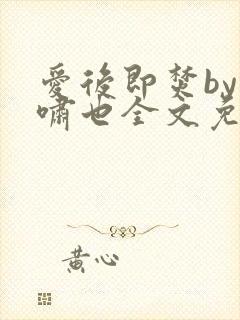 愛後即焚by
嘯也全文免
黄心